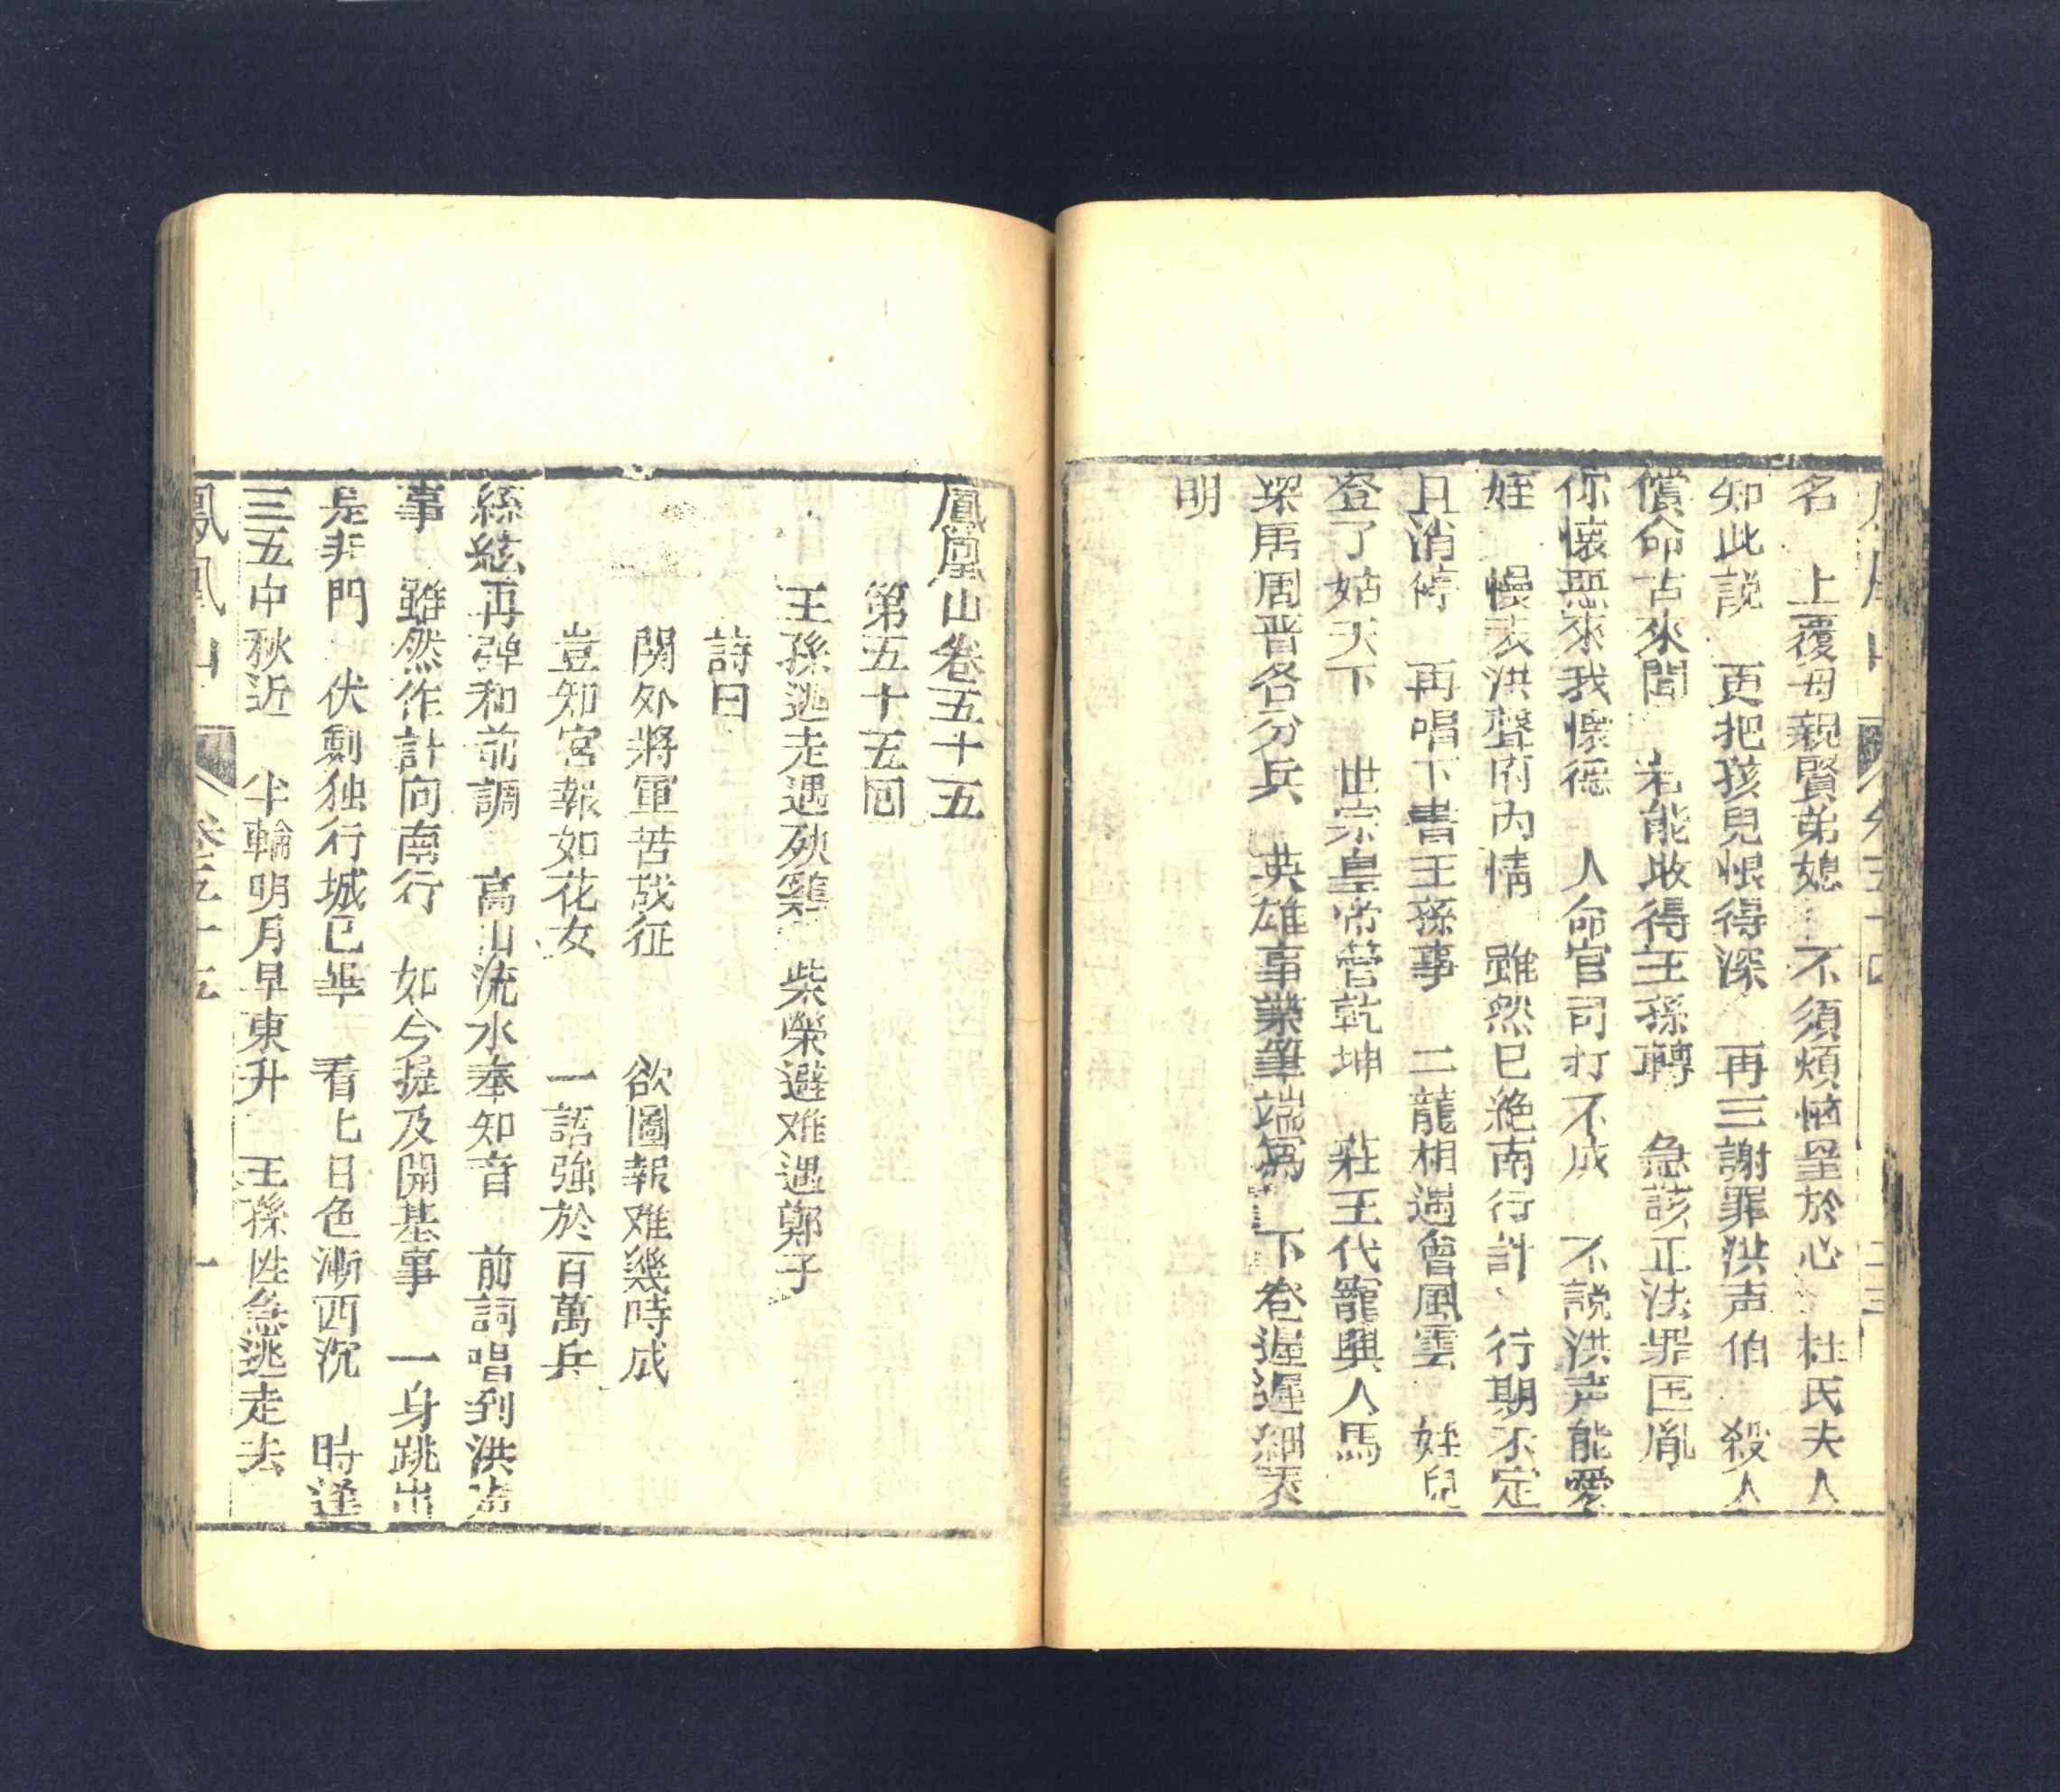 名　上覆母親賢弟媳　不須煩惱星於心　杜氏夫人
如此説　更把孩兒恨得深　再三謝罪洪声伯　殺人
償命古來聞　未能收得王孫轉　急該正法罪囯胤
你懷惡來我懷德　人命官司打不成　不説洪声能愛
姪　慢表洪聲府內情　雖然已絶南行計　行期不定
且消停　再唱下書王孫事　二龍相遇會風雲　姪兒
登了姑天下　世宗皇帝管乾坤　莊王代寵興人馬
梁唐周晋各分兵　英雄事業筆端寫　下卷遲遲細表
明
鳳凰山卷五十五
第五十五回
王孫逃走遇殃鷄　柴榮避难遇鄭子
詩曰
関外將軍苦戰征　欲圖報难幾時成
豈知宮報如花女　一語強於百萬兵
絲絃再弹和前調　高山流水奉知音　前詞唱到洪声
事　雖然作計向南行　如今提及開基事　一身跳出
是非門　伏劍独行城已畢　看上日色漸西沉　時逢
三五中秋近　半輪明月早東升　王孫性急逃走去
鳳凰山　卷五十五　一